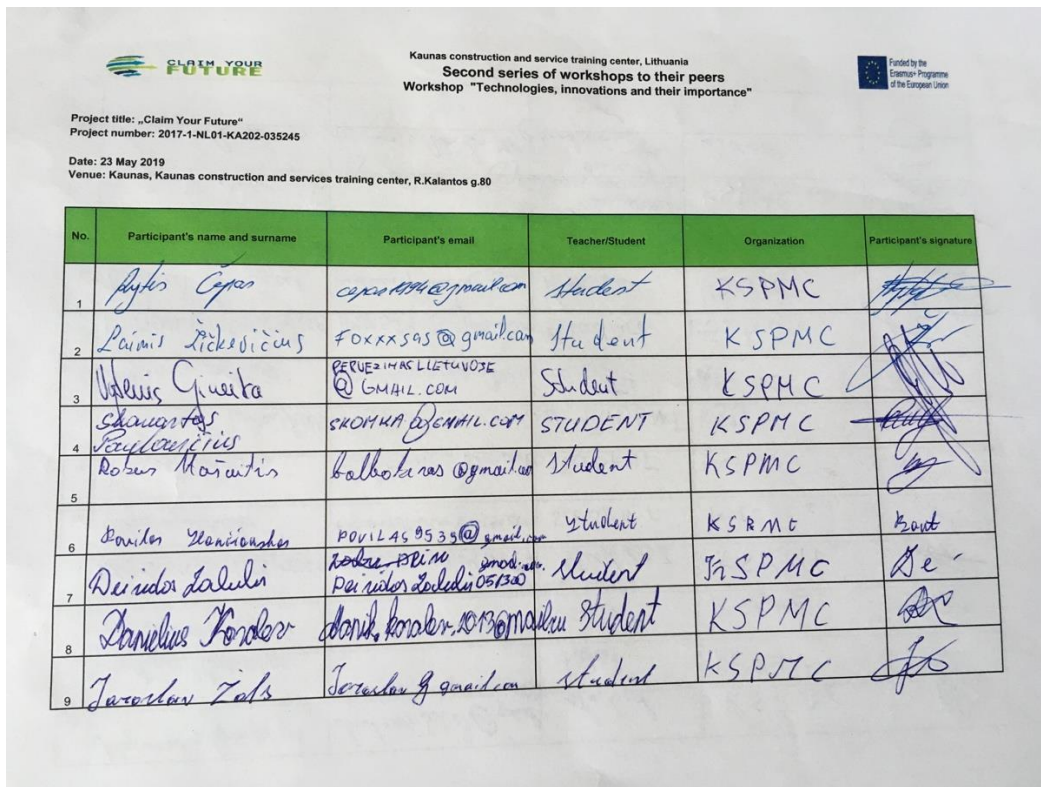 CLAIM YOUR
FUTURE
Kaunas construction and service training center, Lithuania
Second series of workshops to their peers
Workshop "Technologies, innovations and their importance"
Funded by the
Erasmus+ Programme
of the European Union
Project title: „Claim Your Future“
Project number: 2017-1-NL01-KA202-035245
Date: 23 May 2019
Venue: Kaunas, Kaunas construction and services training center, R.Kalantos g.80
No. Participant's name and surname Participant's email Teacher/Student Organization Participant's signature
1 Rytis Čepas cepas1994@gmail.com Student KSPMC
2 Laimis Žičkevičius foxxxsas@gmail.com Student KSPMC
3 Gineika PERVEZIMASLIETUVOJE
@GMAIL.COM Student KSPMC
4 Skomantas
Paulavičius SKOMKA@GMAIL.COM STUDENT KSPMC
5 @gmail.com Student KSPMC
6 POVILAS9539@gmail.com Student KSPMC
7 Deividas student KSPMC
8 Danielius student KSPMC
9 Jaroslav Jaroslav@gmail.com student KSPMC